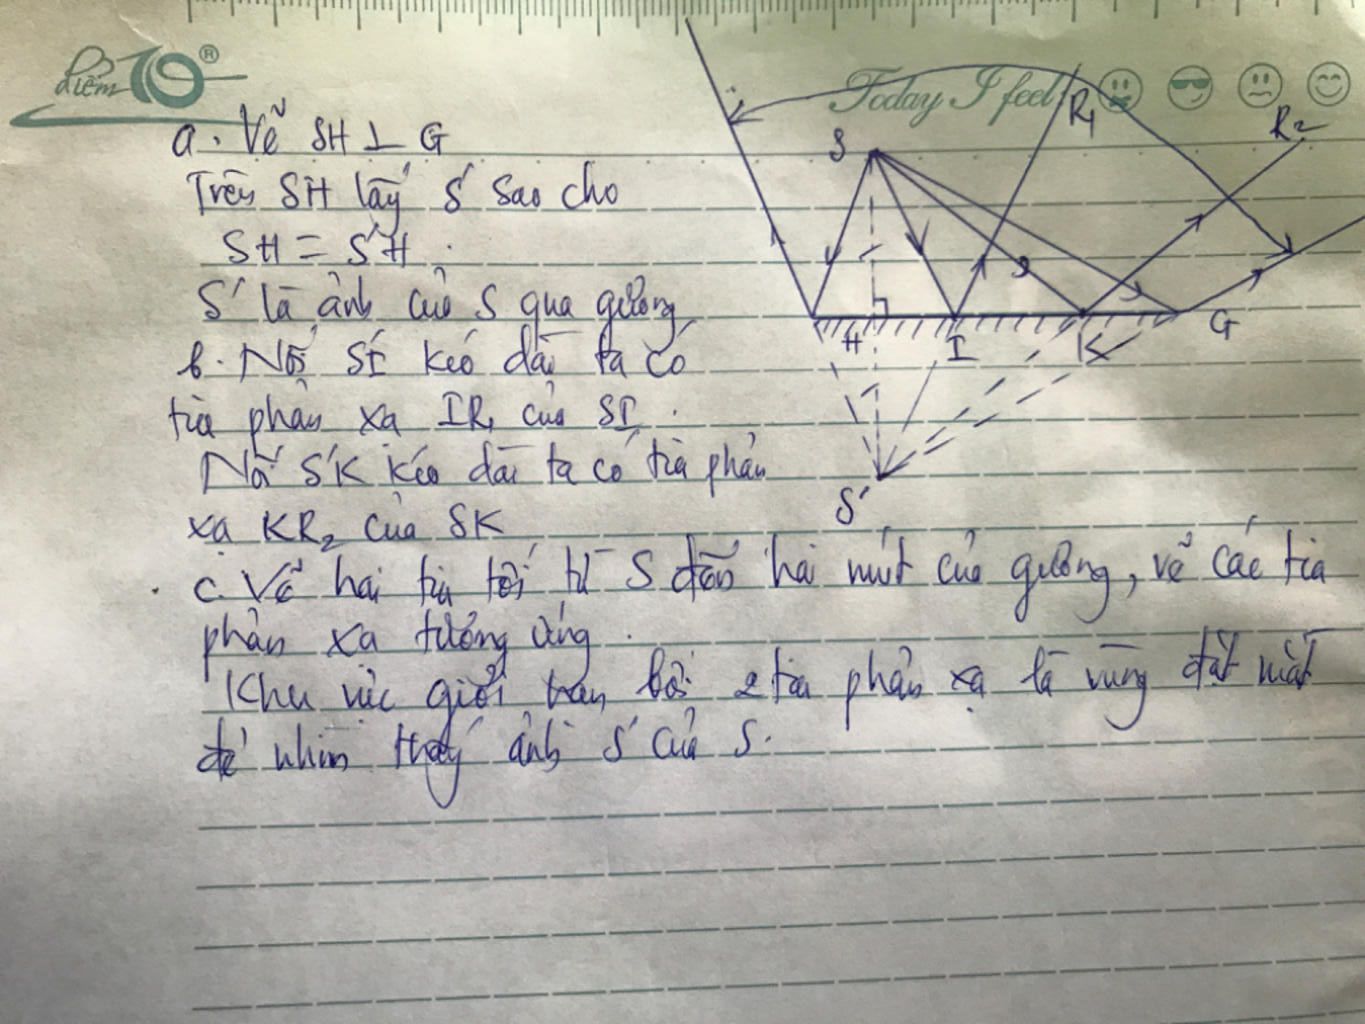 Điểm 10 ®
Today I feel
a. Vẽ SH ⊥ G
Trên SH lấy S' sao cho
SH = S'H.
S' là ảnh của S qua gương
b. Nối S'I kéo dài ta có
tia phản xạ IR₁ của SI.
Nối S'K kéo dài ta có tia phản
xạ KR₂ của SK
c. Vẽ hai tia tới từ S đến hai mút của gương, vẽ các tia
phản xạ tương ứng.
Khu vực giới hạn bởi 2 tia phản xạ là vùng đặt mắt
để nhìn thấy ảnh S' của S.
S
R₁
R₂
H
I
K
G
S'